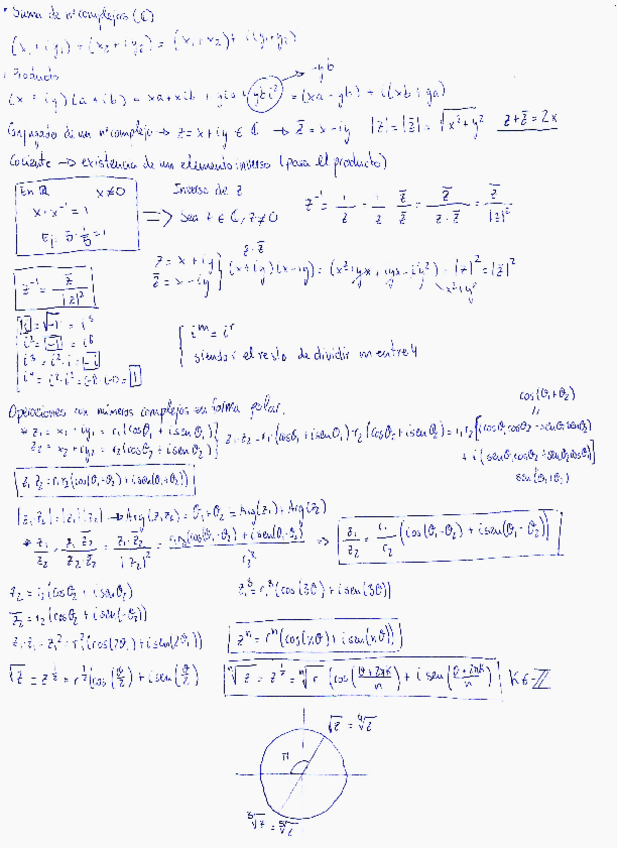 * Suma de nºcomplejos (ℂ)
(x₁+iy₁)+(x₂+iy₂) = (x₁+x₂)+i(y₁+y₂)
Producto
-yb
(x+iy)(a+ib) = xa+xib+yia+ybi² = (xa-yb)+i(xb+ya)
Conjugado de un nºcomplejo → z=x+iy ∈ ℂ → z̄=x-iy |z|=|z̄|=√x²+y² z+z̄=2x
Cociente → existencia de un elemento inverso (para el producto)
En ℝ x≠0
x·x⁻¹=1
Ej: 5·1/5=1
Inverso de z
⇒ Sea z ∈ ℂ, z≠0
z⁻¹ = 1/z = 1/z · z̄/z̄ = z̄/z·z̄ = z̄/|z|²
z·z̄
z=x+iy
z̄=x-iy } (x+iy)(x-iy) = (x²+iyx+iyx-iy²) = |z|²=|z̄|²
x²+y²
z⁻¹ = z̄/|z|²
i=√-1 = i⁵
i²=-1 = i⁶
i³=i²·i=-i
i⁴=i²·i²=(-1)·(-1)=1
{ iᵐ=iʳ
siendo r el resto de dividir m entre 4
Operaciones con números complejos en forma polar.
cos(θ₁+θ₂)
* z₁=x₁+iy₁=r₁(cosθ₁+isenθ₁)
z₂=x₂+iy₂=r₂(cosθ₂+isenθ₂) } z₁·z₂=r₁(cosθ₁+isenθ₁)·r₂(cosθ₂+isenθ₂)=r₁r₂[(cosθ₁cosθ₂-senθ₁senθ₂)
+i(senθ₁cosθ₂+senθ₂cosθ₁)]
sen(θ₁+θ₂)
z₁·z₂=r₁r₂(cos(θ₁+θ₂)+isen(θ₁+θ₂))
|z₁z₂|=|z₁||z₂| → Arg(z₁z₂)=θ₁+θ₂=Arg(z₁)+Arg(z₂)
* z₁/z₂ = z₁·z̄₂/z₂·z̄₂ = z₁z̄₂/|z₂|² = r₁r₂(cos(θ₁-θ₂)+isen(θ₁-θ₂))/r₂² ⇒ z₁/z₂ = r₁/r₂ (cos(θ₁-θ₂)+isen(θ₁-θ₂))
z₂=r₂(cosθ₂+isenθ₂)
z₁³=r₁³(cos(3θ)+isen(3θ))
z̄₂=r₂(cosθ₂+isen(-θ₂))
z₁·z₁=z₁²=r₁²(cos(2θ₁)+isen(2θ₁))
zⁿ=rⁿ(cos(nθ)+isen(nθ))
√z = z^½ = r^½(cos(θ/2)+isen(θ/2)
ⁿ√z = z^(1/n) = ⁿ√r (cos(θ+2πK/n)+isen(θ+2πK/n) K∈ℤ
π